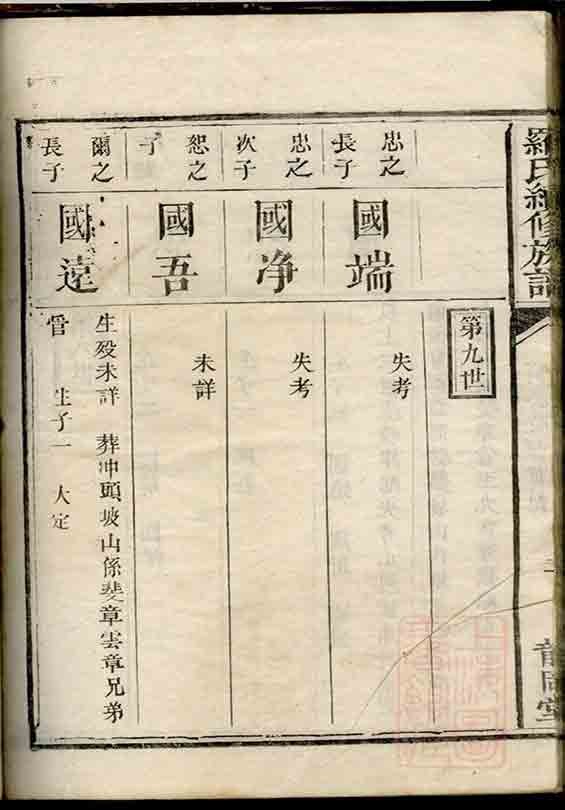 羅氏續修族譜
第九世
忠之
長子
國端
失考
忠之
次子
國净
失考
恕之
子
國吾
未詳
爾之
長子
國遠
生殁未詳 葬冲頭坡山係斐章雲章兄弟
管 生子一 大定